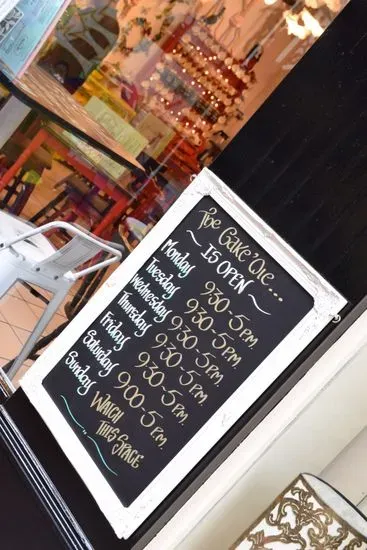 The Cake 'Ole...
~ IS OPEN ~
Monday 9:30-5pm.
Tuesday 9:30-5pm.
Wednesday 9:30-5pm.
Thursday 9:30-5pm.
Friday 9:30-5pm.
Saturday 9:00-5pm.
Sunday WATCH THIS SPACE